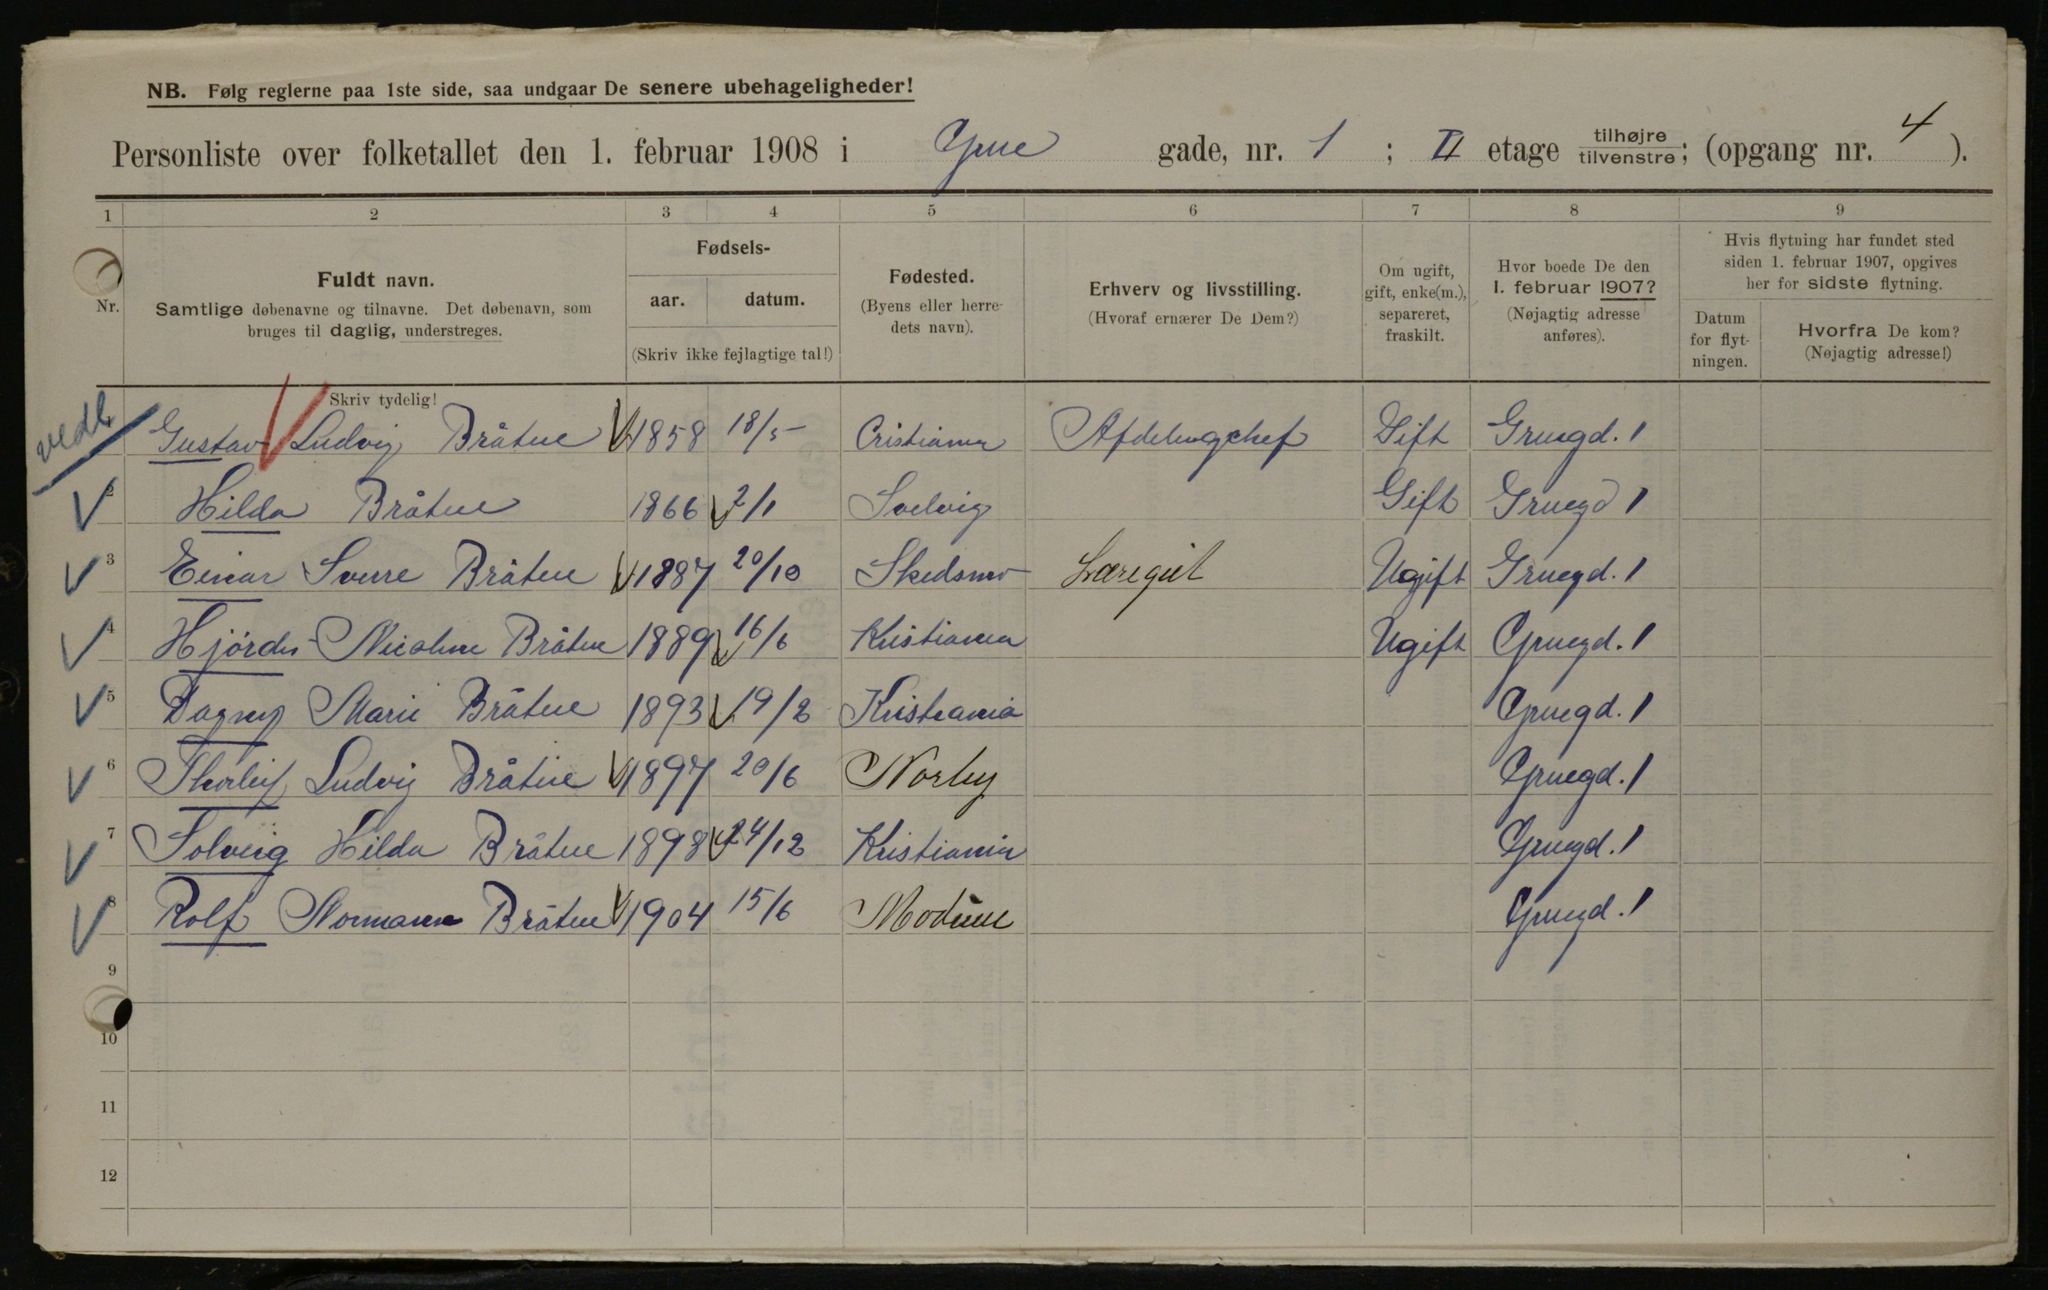 NB. Følg reglerne paa 1ste side, saa undgaar De senere ubehageligheder!
Personliste over folketallet den 1. februar 1908 i Grue gade, nr. 1 ; II etage tilhøjre tilvenstre; (opgang nr. 4 ).
1 2 3 4 5 6 7 8 9
Nr.
Fuldt navn.
Samtlige døbenavne og tilnavne. Det døbenavn, som
bruges til daglig, understreges.
Skriv tydelig!
Fødsels-
aar. datum.
(Skriv ikke fejlagtige tal!)
Fødested.
(Byens eller herre-
dets navn).
Erhverv og livsstilling.
(Hvoraf ernærer De Dem?)
Om ugift,
gift, enke(m.),
separeret,
fraskilt.
Hvor boede De den
1. februar 1907?
(Nøjagtig adresse
anføres).
Hvis flytning har fundet sted
siden 1. februar 1907, opgives
her for sidste flytning.
Datum
for flyt-
ningen.
Hvorfra De kom?
(Nøjagtig adresse!)
vedl.
Gustav Ludvig Bråten 1858 18/5 Cristiania Afdelingchef Gift Gruegd. 1
2 Hilda Bråten 1866 2/1 Svelvig Gift Gruegd 1
3 Einar Sverre Bråten 1887 20/10 Skedsmo Ugift Gruegd. 1
4 Hjørdis Nicoline Bråten 1889 16/6 Kristiania Ugift Gruegd. 1
5 Dagny Marie Bråten 1893 19/2 Kristiania Gruegd. 1
6 Thorleif Ludvig Bråten 1897 20/6 Norby Gruegd. 1
7 Solveig Hilda Bråten 1898 24/12 Kristiania Gruegd. 1
8 Rolf Normann Bråten 1904 15/6 Modum Gruegd. 1
9
10
11
12